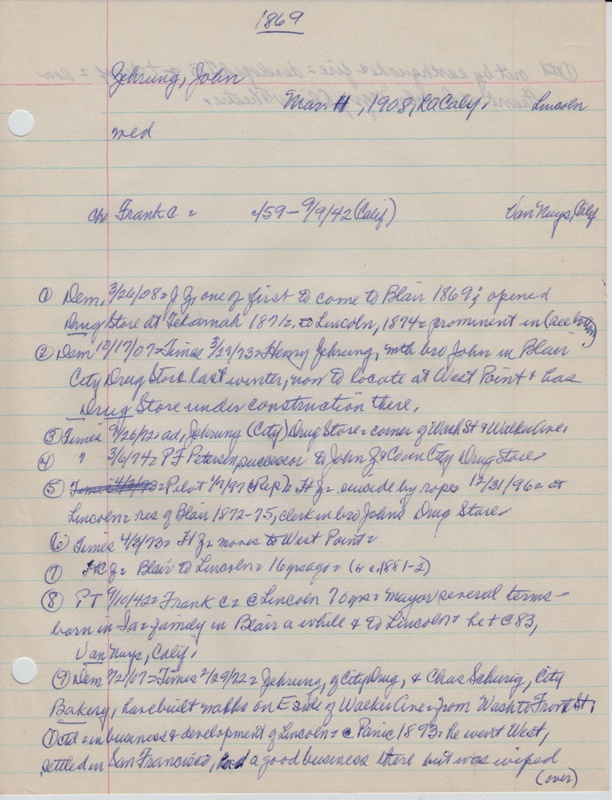 1869
Zehrung, John
Mar. 11, 1908, LA Caly. Lincoln
med
ch: Frank C = c/59 - 9/9/42 (Calif) Van Nuys, Calif
① Dem, 3/26/08 = J Z, one of first to come to Blair 1869; opened
Drug Store at Tekamah 1871=, to Lincoln, 1874 = prominent in (see bottom)
② Dem 10/17/07 = Times 3/27/73 = Henry Zehrung, with bro John in Blair
City Drug Store last winter, now to locate at West Point & has
Drug Store under construction there.
③ Times 9/26/72 = ad, Zehrung (City) Drug Store = corner of Wash St & Walker Ave.
④ " 3/6/74 = P F Petersen successor to John Z & Co on City Drug Store
⑤ Pilot 1/7/97 (Rep) = H Z = suicide by rope 12/31/96 = at
Lincoln = res of Blair 1872-75, clerk in bro John's Drug Store
⑥ Times 4/3/73 = H Z = moves to West Point =
⑦ = Blair to Lincoln = 16 yrs ago = (w c 1881-2)
⑧ PT 9/10/42 = Frank C = @ Lincoln 70 yrs = Mayor several terms -
born in Ia = family in Blair a while & to Lincoln = he d @ 83,
Van Nuys, Calif.
⑨ Dem 7/2/07 = Times 2/29/72 = Zehrung, of City Drug, & Chas Schurig, City
Bakery, have built walks on E side of Walker Ave = from Wash to Front St.
① ctd = in business & development of Lincoln = @ Panic 1893 = he went West,
settled in San Francisco, had a good business there but was wiped
(over)